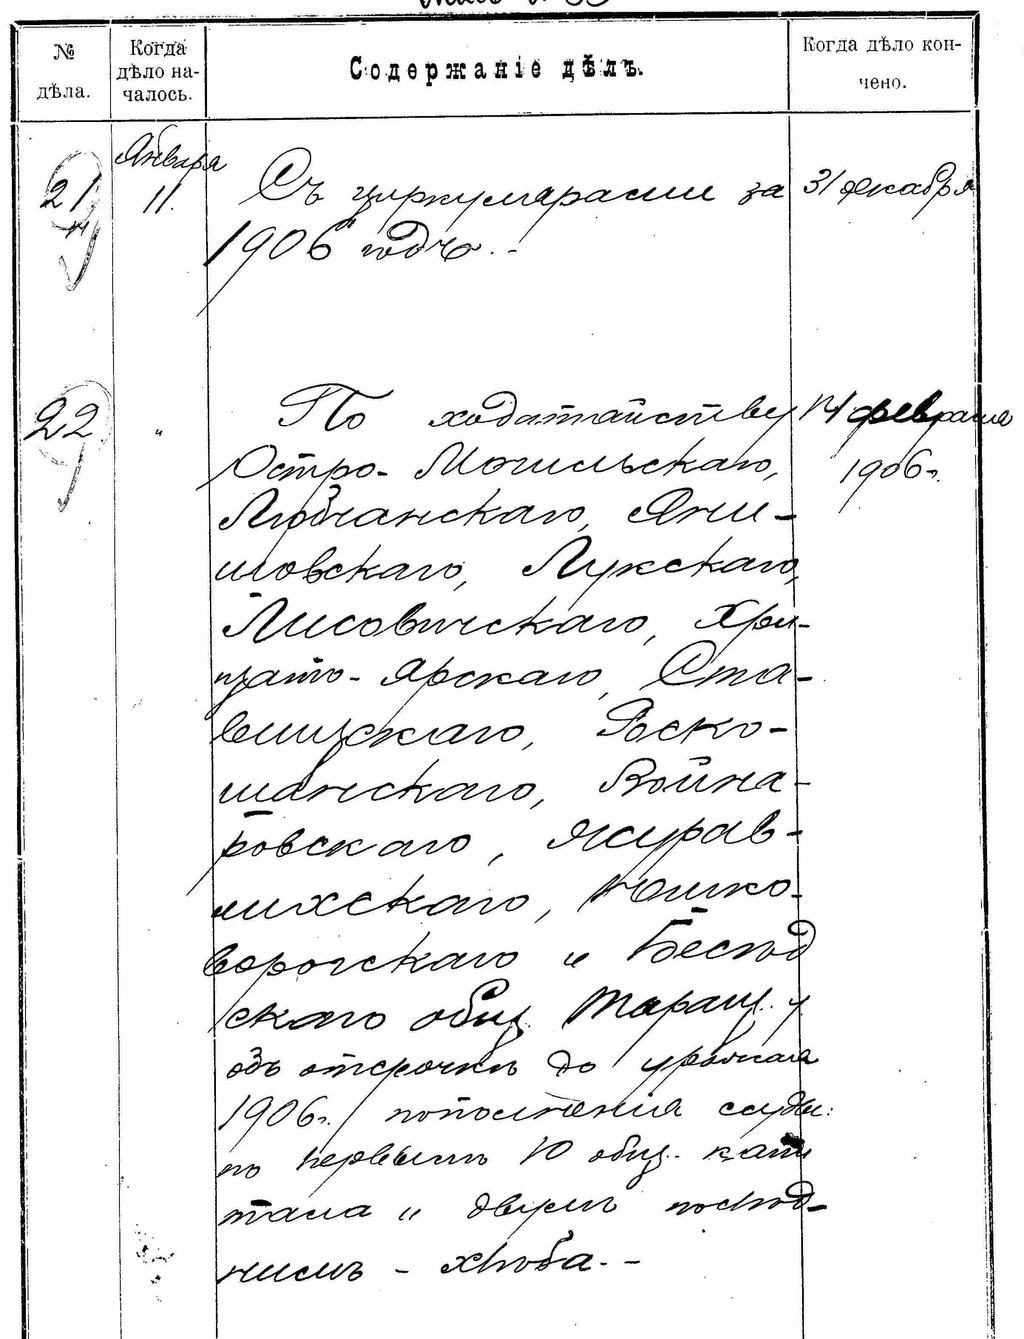 № дѣла.
Когда дѣло на- чалось.
Содержаніе дѣлъ.
Когда дѣло кон- чено.
21
Января 11.
Съ циркулярами за
1906 годъ. -
31 декабря
22
"
По ходатайству
14 февраля
1906 г.
Остро-Могильскаго,
Любчанскаго, Яни-
шовскаго, Лукскаго,
Лисовичскаго, Хры-
щато-Ярскаго, Ста-
вищскаго, Роско-
шанскаго, Война-
ровскаго, Журав-
лихскаго, Юшко-
ворогскаго и Бесѣд
скаго общ. Таращ. у
объ отсрочкѣ до урожая
1906 г. пополненія ссуды:
по первымъ 10 общ. капи
тала и двумъ послѣд-
нимъ - хлѣба. -